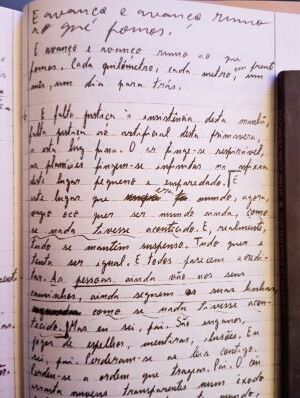 E avanço e avanço rumo
ao que fomos!
E avanço e avanço rumo ao que
fomos. Cada quilómetro, cada metro, em frente
mês, um dia para trás.
E falta justiça à existência desta manhã,
falta justiça ao artificial desta primavera,
a esta luz fina. O ar finge-se respirável,
as planícies fingem-se infinitas na
deste lugar pequeno e emparedado. E
este lugar que era mundo, agora,
quer ser mundo ainda, como
se nada tivesse acontecido. E, realmente,
tudo se mantém suspenso. Tudo quer e
tenta ser igual. E todos parecem acredi-
tar. As pessoas ainda vão nos seus
caminhos, ainda seguem as suas linhas,
como se nada tivesse acon-
tecido. Mas eu sei, pai. São enganos,
jogos de espelhos, mentiras, ilusões. Eu
sei, pai. Perderam-se as leis contigo.
Perdeu-se a ordem que trazias. Pai. O céu
arrasta nuvens transparentes num êxodo
mundo,